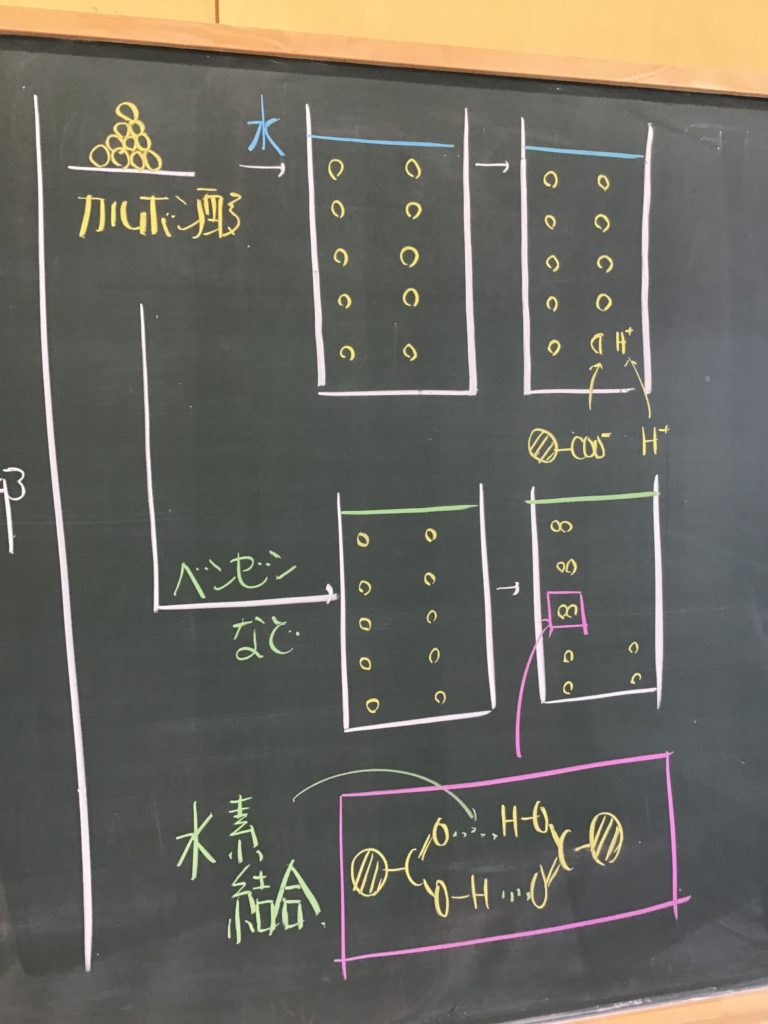 水
カルボン酸
H⁺
-COO⁻ H⁺
ベンゼン
など
水素
結合
O H-O
C C
O-H O